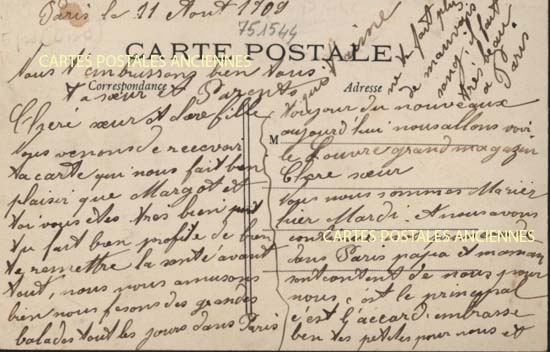 Paris le 11 Aout 1909
751544
CARTE POSTALE
CARTES POSTALES ANCIENNES
Nous t'embrassons bien tous
ta sœur et Parents
Correspondance
Adresse
M
Chere sœur et
fille
Nous venons de recevoir
ta carte qui nous fait bien
plaisir que Margot et
toi vous etes tres bien
tu fait bien profite de bien
te remettre la santé avant
tout, nous nous amusons
bien nous fesons des grandes
balades tout les jours dans Paris
toujour du nouveaux
aujourd'hui nous allons voir
le Louvre grand magazin
Chere sœur
nous sommes
hier Mardi. A nous avons
CARTES POSTALES ANCIENNES
dans Paris papa et maman
sont content de nous pour
nous, c'est le principal
c'est l'accard. embrasse
bien tes petites pour nous et
qui t'aime
ne te fait plus
de mauvais
sang, il fait
tres beau
a Paris